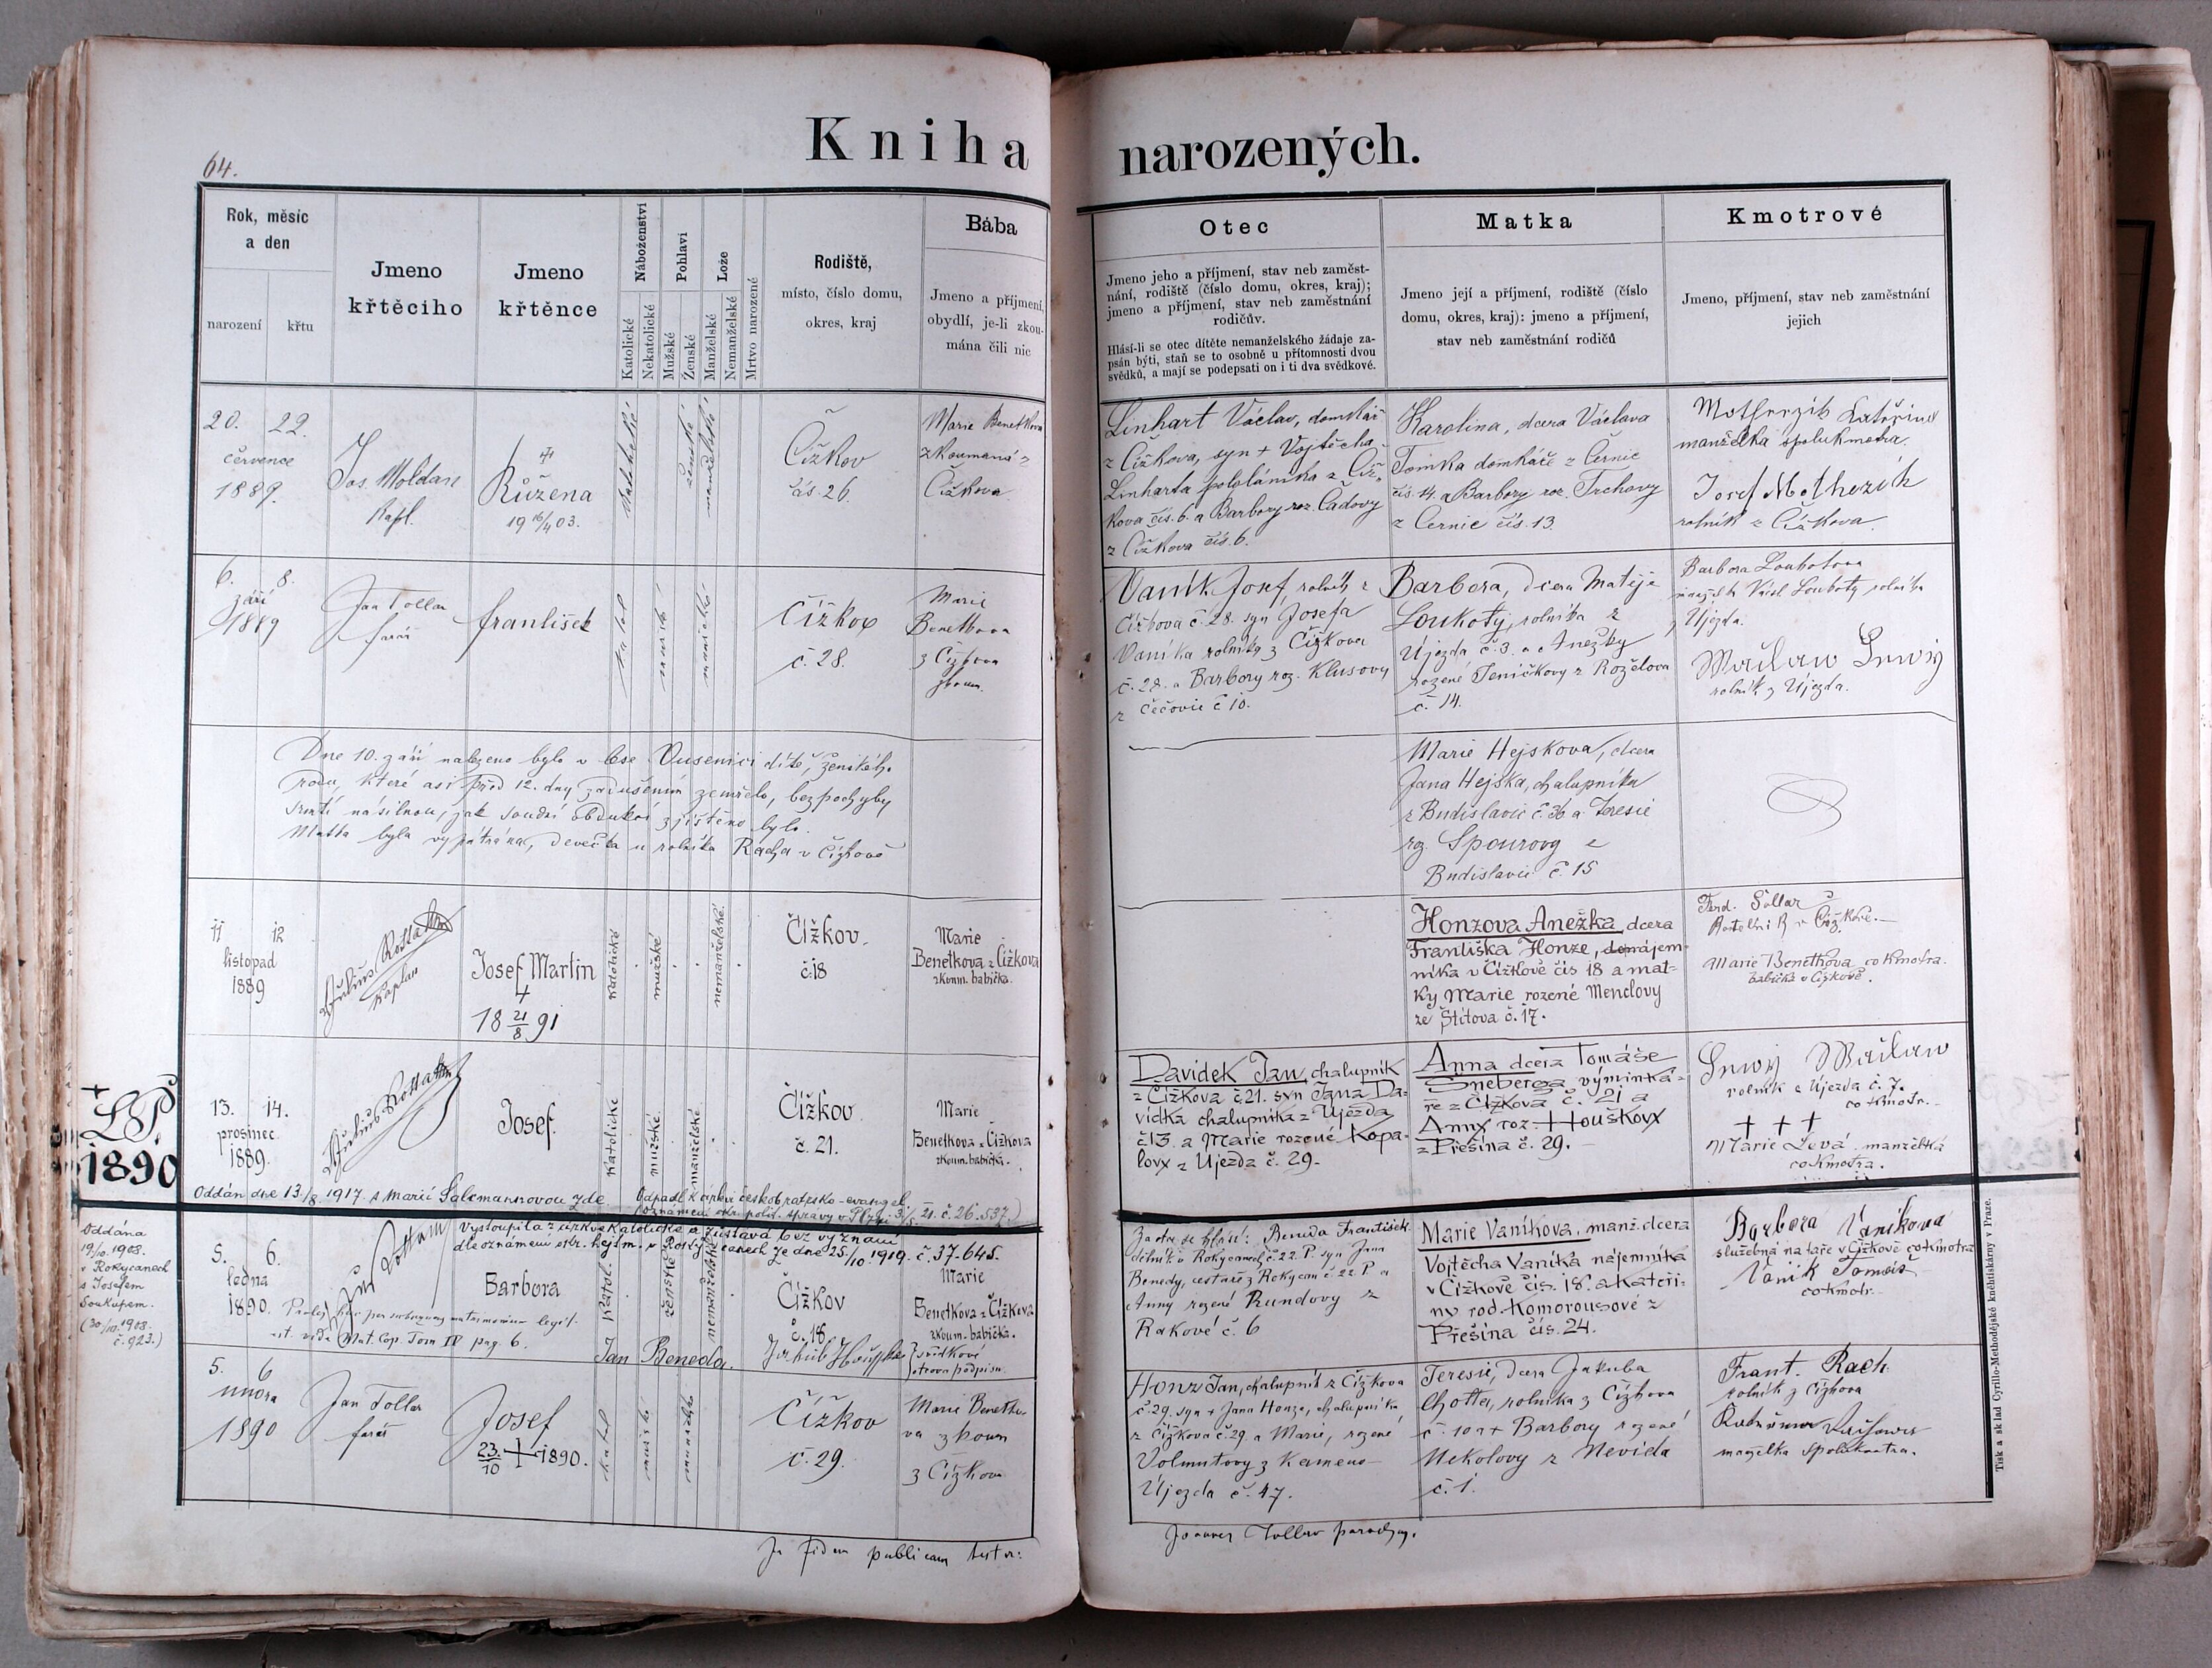 Kniha narozených.
64.
Rok, měsíc
a den
narození
křtu
Jmeno
křtěcího
Jmeno
křtěnce
Náboženství
Katolické
Nekatolické
Pohlaví
Mužské
Ženské
Lože
Manželské
Nemanželské
Mrtvo narozené
Rodiště,
místo, číslo domu,
okres, kraj
Bába
Jmeno a příjmení,
obydlí, je-li zkou-
mána čili nic
Otec
Jmeno jeho a příjmení, stav neb zaměst-
nání, rodiště (číslo domu, okres, kraj);
jmeno a příjmení, stav neb zaměstnání
rodičův.
Hlásí-li se otec dítěte nemanželského žádaje za-
psán býti, staň se to osobně u přítomnosti dvou
svědků, a mají se podepsati on i ti dva svědkové.
Matka
Jmeno její a příjmení, rodiště (číslo
domu, okres, kraj): jmeno a příjmení,
stav neb zaměstnání rodičů
Kmotrové
Jmeno, příjmení, stav neb zaměstnání
jejich
20. 22.
července
1889.
Jos. Moldan
kapl.
Růžena
19 16/4 03.
katolické
ženské
manželské
Čížkov
čís. 26.
Marie Benetkova
zkoumaná z
Čížkova
Linhart Václav, domkář
z Čížkova, syn + Vojtěcha
Linharta pololáníka z Číž-
kova čís. 6. a Barbory roz. Čadovy
z Čížkova čís. 6.
Karolina, dcera Václava
Tomka domkáře z Černic
čís. 14. a Barbory roz. Trchovy
z Černic čís. 13.
manželka spolukmotra.
Josef
rolník z Čížkova.
6. 8.
září
1889
Jan Tollar
farář
František
katol
mužské
manželské
Čížkov
č. 28.
Marie
Benetkova
z Čížkova
zkoum.
Vaník Josef, rolník z
Čížkova č. 28. syn Josefa
Vaníka rolníka z Čížkova
č. 28. a Barbory roz. Klusovy
z Čečovic č 10.
Barbora, dcera Matěje
Loukoty, rolníka z
Újezda č. 3. a Anežky
rozené Teničkovy z Roželova
č. 14.
Barbora Loukotova
rolníka
z Újezda.
rolník z Újezda.
Dne 10. září nalezeno bylo v lese Ousenici dítě, ženského
rodu, které asi před 12. dny zadušením zemřelo, bezpochyby
smrtí násilnou, jak soudní obdukcí zjištěno bylo.
Matka byla vypátrána, děvečka u rolníka Rácha v Čížkově
Marie Hejskova, dcera
Jana Hejska, chalupníka
z Budislavic č. 36 a Teresie
roz. Spourovy z
Budislavic č. 15
11 12
listopad
1889
kaplan
Josef Martin
18 21/8 91
katolické
mužské
nemanželské.
Čížkov.
č. 18
Marie
Benetkova z Čížkova
zkoum. babička.
Honzova Anežka dcera
Františka Honze, nájem-
níka v Čížkově čís 18 a mat-
ky Marie rozené Menclovy
ze Štítova č. 17.
v Čížkově.
Marie Benetkova co kmotra.
babička v Čížkově.
1890
13. 14.
prosinec
1889.
Josef.
katolické
mužské.
manželské.
Čížkov.
č. 21.
Marie
Benetkova z Čížkova
zkoum. babička.
Oddán dne 13/8 1917. s Marií Salcmannovou zde
Odpadl k církvi českobratrsko-evangel.
Davídek Jan, chalupník
z Čížkova č. 21. syn Jana Da-
vídka chalupníka z Újezda
č 13. a Marie rozené Kopa-
lovy z Újezda č. 29.
Anna dcera Tomáše
Šneberga výminká-
ře z Čížkova č. 21 a
Anny roz. Houškovy
z Přešína č. 29.
rolník z Újezda č. 7.
co kmotr.
+ + +
Marie Levá manželka
co kmotra.
Oddána
19/10. 1908.
v Rokycanech
s Josefem
Soukupem.
(30/10. 1908.
č. 923.)
Vystoupila z církve katolické a zůstává bez vyznání
dle oznámení okr. hejtm. v Rokycanech ze dne 25/10. 1919. č. 37.645.
5. 6.
ledna
1890.
Barbora
katol.
ženské
nemanželské
Čížkov
č. 18
Marie
Benetkova z Čížkova
zkoum. babička.
Proles per subsequens matrimonium legit.
Mat. Cop. Tom IV pag. 6.
Jan Beneda.
svědkové
Za otce se hlásí: Benda František
dělník v Rokycanech č. 22. P. syn Jana
Benedy, cestáře z Rokycan č. 22 P a
Anny rozené Rundovy z
Rakové č. 6
Marie Vaníkova, manž. dcera
Vojtěcha Vaníka nájemníka
v Čížkově čís. 18. a Kateři-
ny rod. Komorousové z
Přešína čís. 24.
Barbora Vaníkova
služebná na faře v Čížkově co kmotra
Vaník Tomáš
co kmotr.
5. 6
února
1890
Jan Tollar
farář
Josef
23/10 + 1890.
katol
mužské
manželské
Čížkov
č. 29.
Marie Benetko-
va zkoum
z Čížkova
Honz Jan, chalupník z Čížkova
č. 29. syn + Jana Honze, chalupníka
z Čížkova č. 29. a Marie, rozené
Volmutovy z Kameno-
Újezda č. 47.
Teresie, dcera Jakuba
Chotta, rolníka z Čížkova
č. 10 a + Barbory rozené
Nekolovy z Nevida
č. 1.
Frant. Rach
rolník z Čížkova
manželka spolukmotra.
In fidem publicam testor:
Joannes Tollar parochus.
Tisk a sklad Cyrillo-Methodějské knihtiskárny v Praze.